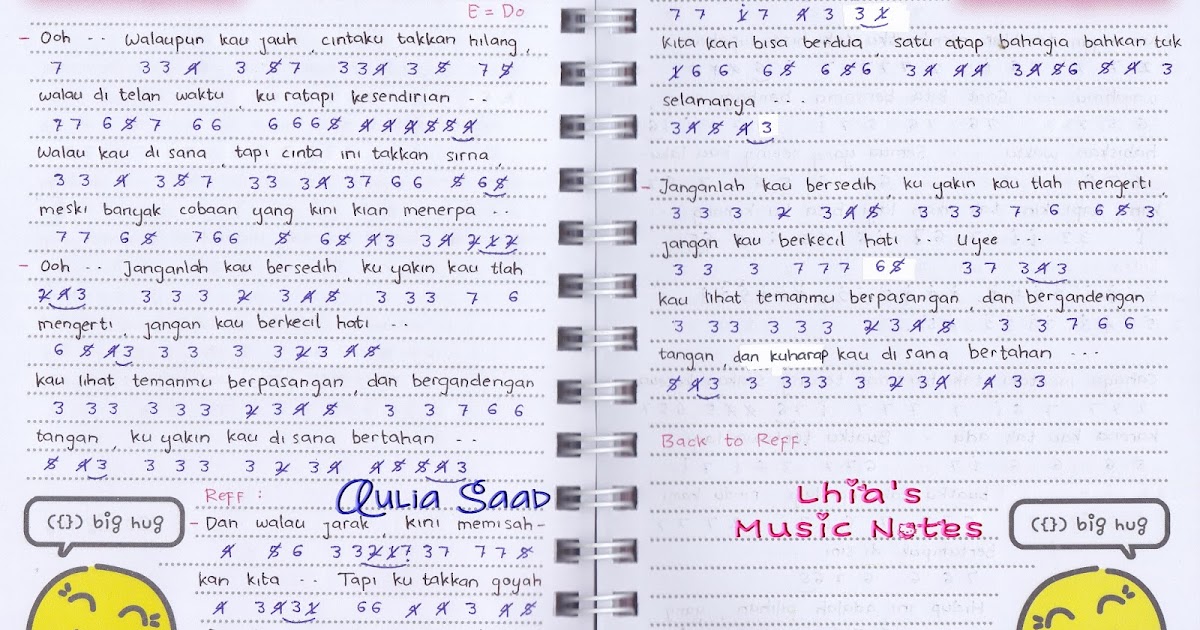 E = Do
- Ooh -- Walaupun kau jauh, cintaku takkan hilang,
7 3 3 4̸ 3 5̸ 7 3 3 4̸ 3 5̸ 7 5̸
walau di telan waktu, ku ratapi kesendirian --
7 7 6 5̸ 7 6 6 6 6 6 5̸ 4̸ 4̸ 4̸ 5̸ 5̸ 4̸
Walau kau di sana, tapi cinta ini takkan sirna,
3 3 4̸ 3 5̸ 7 3 3 3 4̸ 3 7 6 6 5̸ 6 5̸
meski banyak cobaan yang kini kian menerpa --
7 7 6 5̸ 7 6 6 5̸ 6 5̸ 4̸ 3 3 4̸ 2̸ 1̸ 2̸
- Ooh -- Janganlah kau bersedih, ku yakin kau tlah
2̸ 4̸ 3 3 3 3 2̸ 3 4̸ 5̸ 3 3 3 7 6
mengerti, jangan kau berkecil hati ---
6 5̸ 4̸ 3 3 3 3 3 2̸ 3 4̸ 5̸
kau lihat temanmu berpasangan, dan bergandengan
3 3 3 3 3 3 2̸ 3 4̸ 5̸ 3 3 7 6 6
tangan, ku yakin kau di sana bertahan --
5̸ 4̸ 3 3 3 3 3 2̸ 3 4̸ 4̸ 5̸ 5̸ 4̸ 3
Reff :
Qulia Saad
- Dan walau jarak, kini memisah-
4̸ 5̸ 6 3 3 2̸ 1̸ 7 3 7 7 7 5̸
kan kita -- Tapi ku takkan goyah
4̸ 3 4̸ 3 1̸ 6 6 4̸ 4̸ 3 4̸ 5̸
({}) big hug
7 7 1̸ 7 4̸ 3 3 1̸
kita kan bisa berdua satu atap bahagia bahkan tuk
1̸ 6 6 6 5̸ 6 5̸ 6 3 4̸ 4̸ 4̸ 3 4̸ 5̸ 6 5̸ 4̸ 3
selamanya ---
3 4̸ 5̸ 4̸ 3
- Janganlah kau bersedih, ku yakin kau tlah mengerti,
3 3 3 2̸ 3 4̸ 5̸ 3 3 3 7 6 6 5̸ 3
jangan kau berkecil hati -- Uyee ---
3 3 3 7 7 7 6 5̸ 3 7 3 4̸ 3
kau lihat temanmu berpasangan, dan bergandengan
3 3 3 3 3 3 2̸ 3 4̸ 5̸ 3 3 7 6 6
tangan, dan kuharap kau di sana bertahan ---
5̸ 4̸ 3 3 3 3 3 3 2̸ 3 4̸ 4̸ 3 3
Back to Reff!
Lhia's
Music Notes
({}) big hug